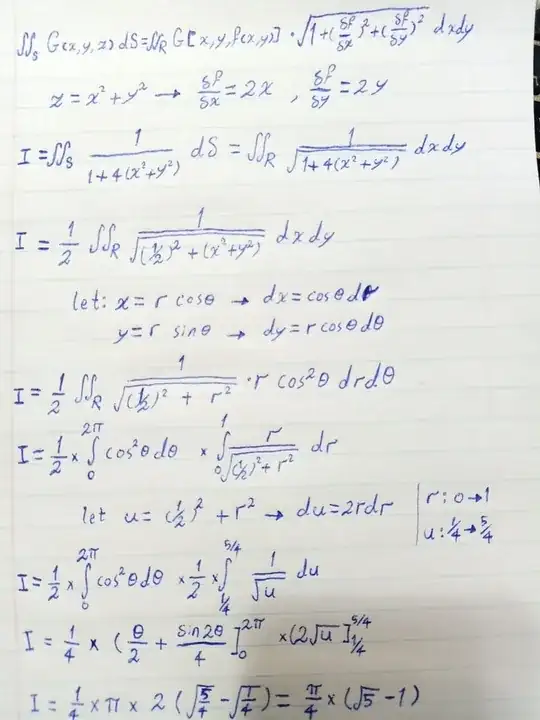 ∬_S G(x,y,z) dS = ∬_R G[x,y,f(x,y)] · √(1+(δf/δx)²+(δf/δy)²) dxdy
z = x² + y² → δf/δx = 2x , δf/δy = 2y
I = ∬_S 1/(1+4(x²+y²)) dS = ∬_R 1/√(1+4(x²+y²)) dxdy
I = 1/2 ∬_R 1/√((1/2)² + (x²+y²)) dxdy
let: x = r cosθ → dx = cosθ dr
y = r sinθ → dy = r cosθ dθ
I = 1/2 ∬_R 1/√((1/2)² + r²) · r cos²θ drdθ
I = 1/2 × ∫_0^{2π} cos²θ dθ × ∫_0^1 r/√((1/2)² + r²) dr
let u = (1/2)² + r² → du = 2rdr
r: 0 → 1
u: 1/4 → 5/4
I = 1/2 × ∫_0^{2π} cos²θ dθ × 1/2 × ∫_{1/4}^{5/4} 1/√u du
I = 1/4 × (θ/2 + sin2θ/4]_0^{2π} × (2√u]_{1/4}^{5/4}
I = 1/4 × π × 2 (√(5/4) - √(1/4)) = π/4 × (√5 - 1)